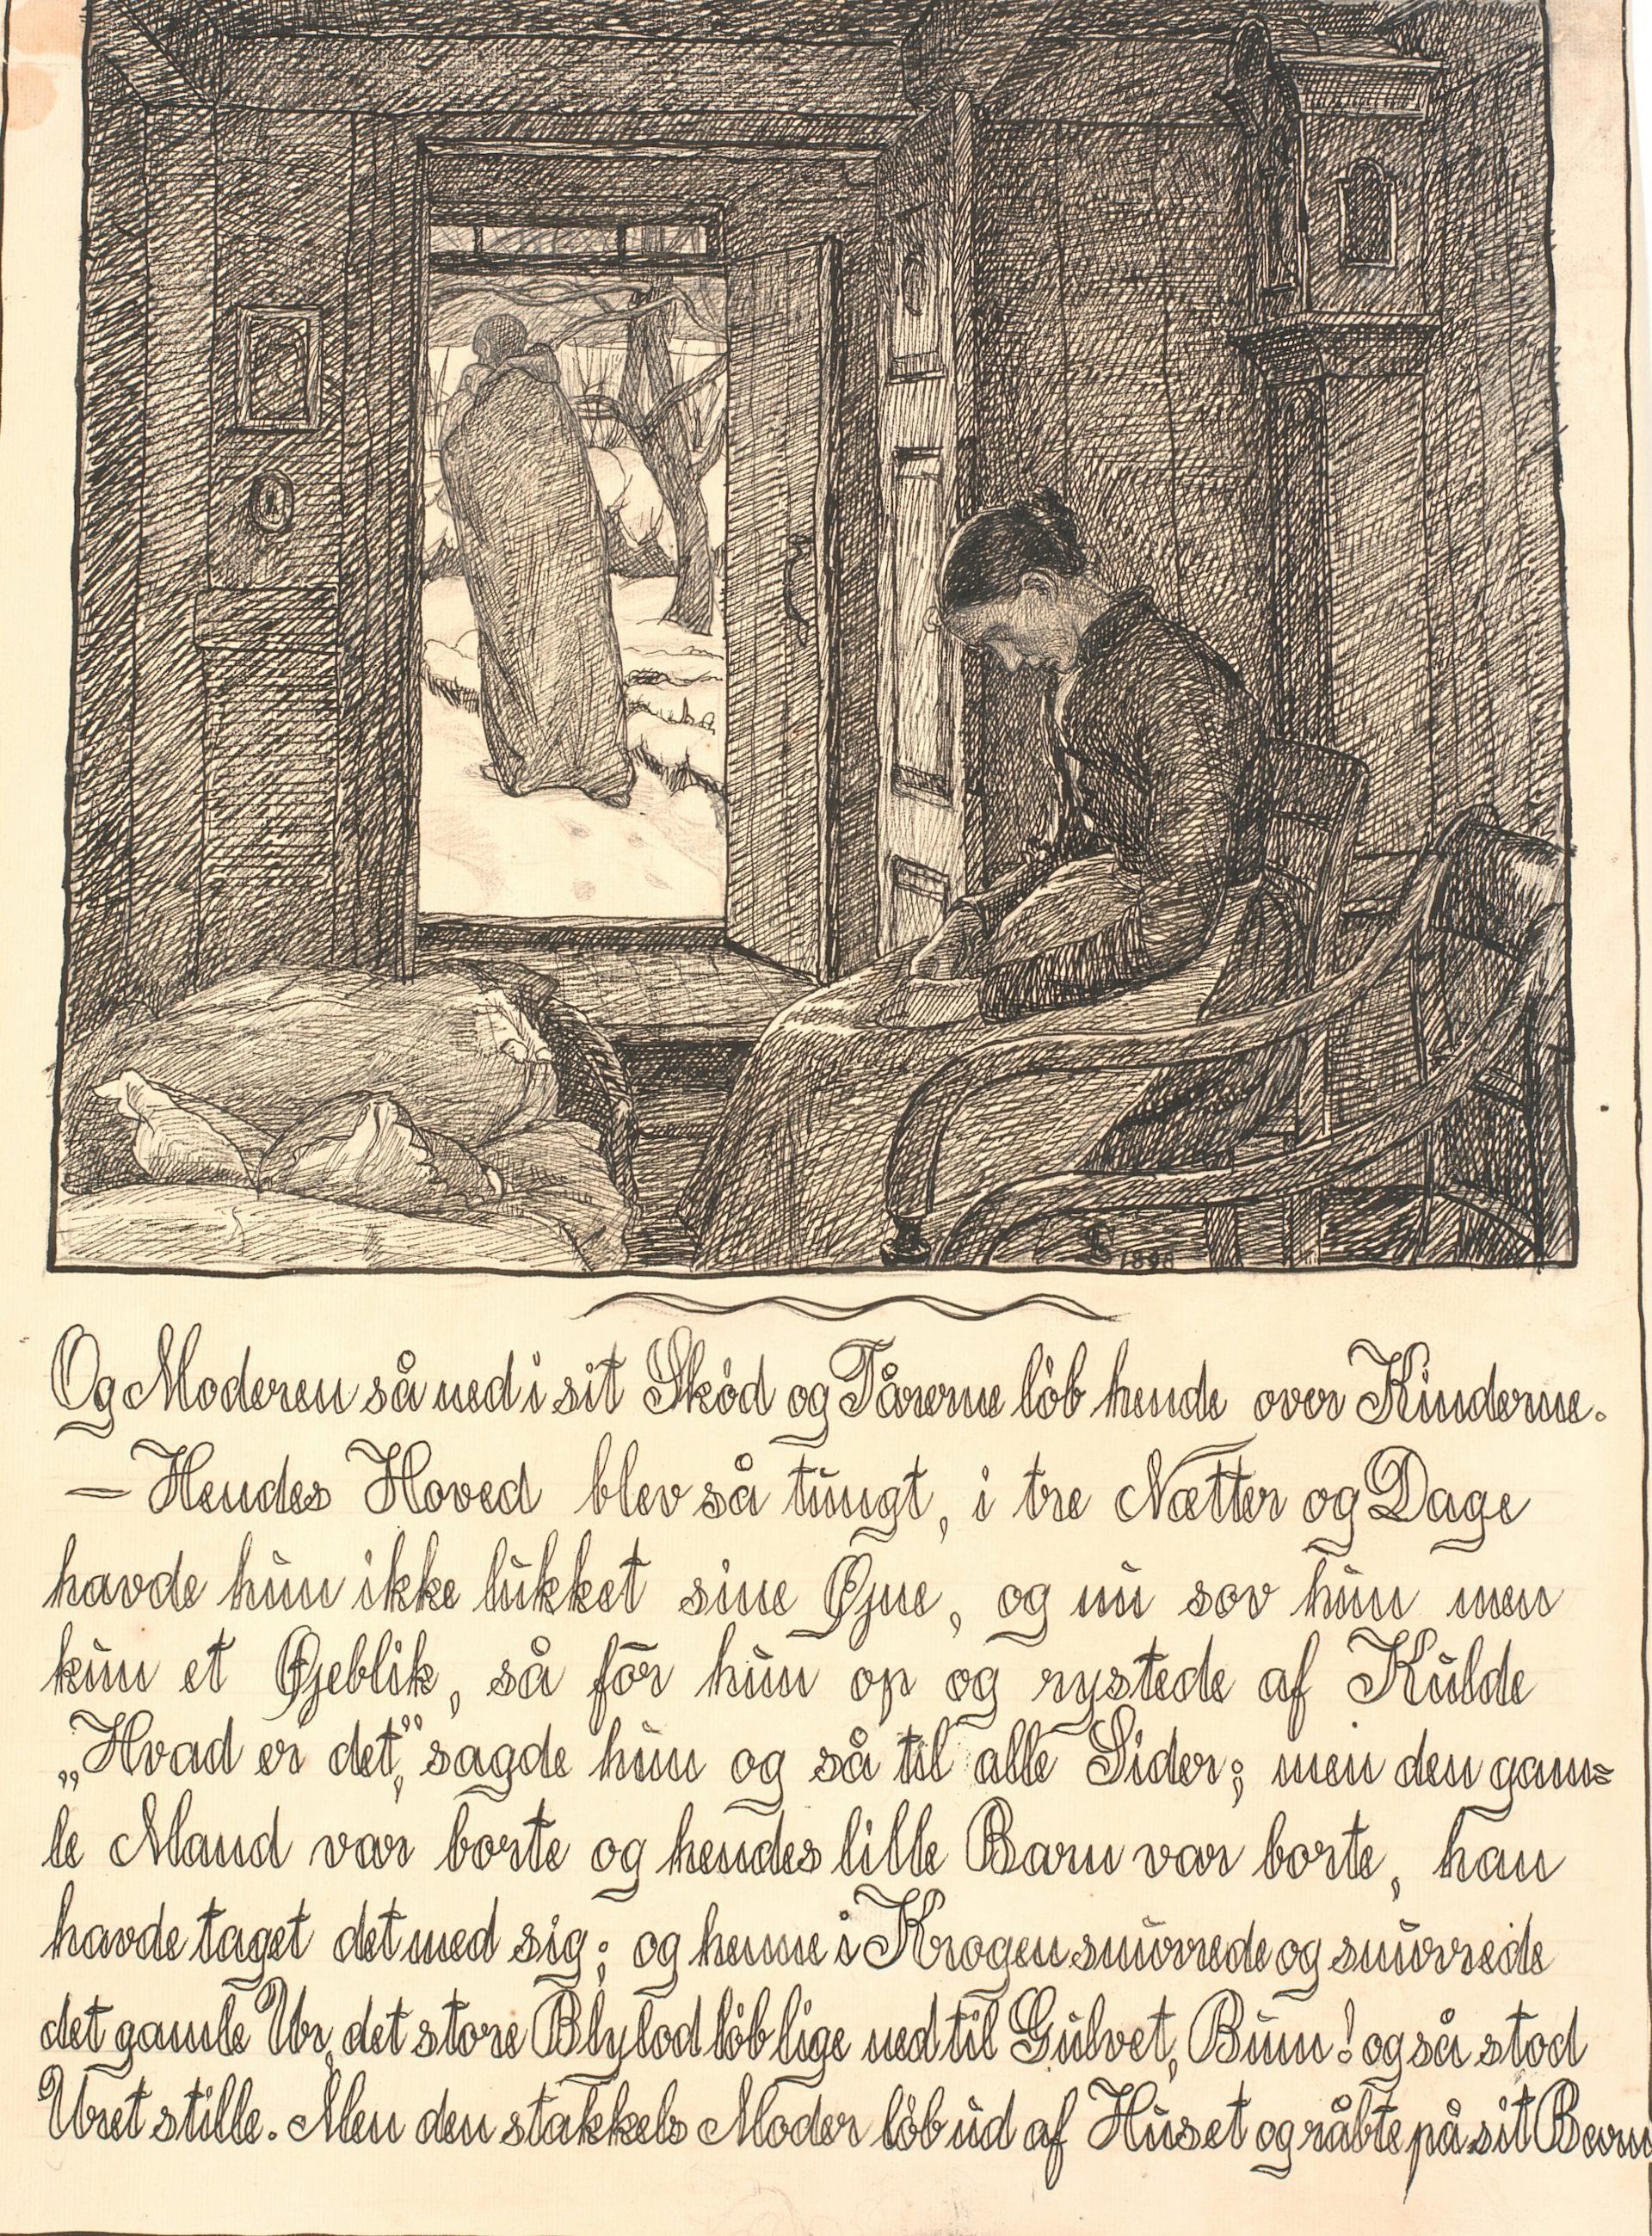 S 1898
Og Moderen så ned i sit Skód og Tårerne lób hende over Kinderne.
— Hendes Hoved blev så tungt, i tre Nætter og Dage
havde hun ikke lukket sine Øjne, og nu sov hun men
kun et Øjeblik, så fór hun op og rystede af Kulde
„Hvad er det," sagde hun og så til alle Sider; men den gam=
le Mand var borte og hendes lille Barn var borte, han
havde taget det med sig; og henne i Krogen snurrede og snurrede
det gamle Ur, det store Blylod lób lige ned til Gulvet, Bum! også stod
Uret stille. Men den stakkels Moder lób ud af Huset og råbte på sit Barn